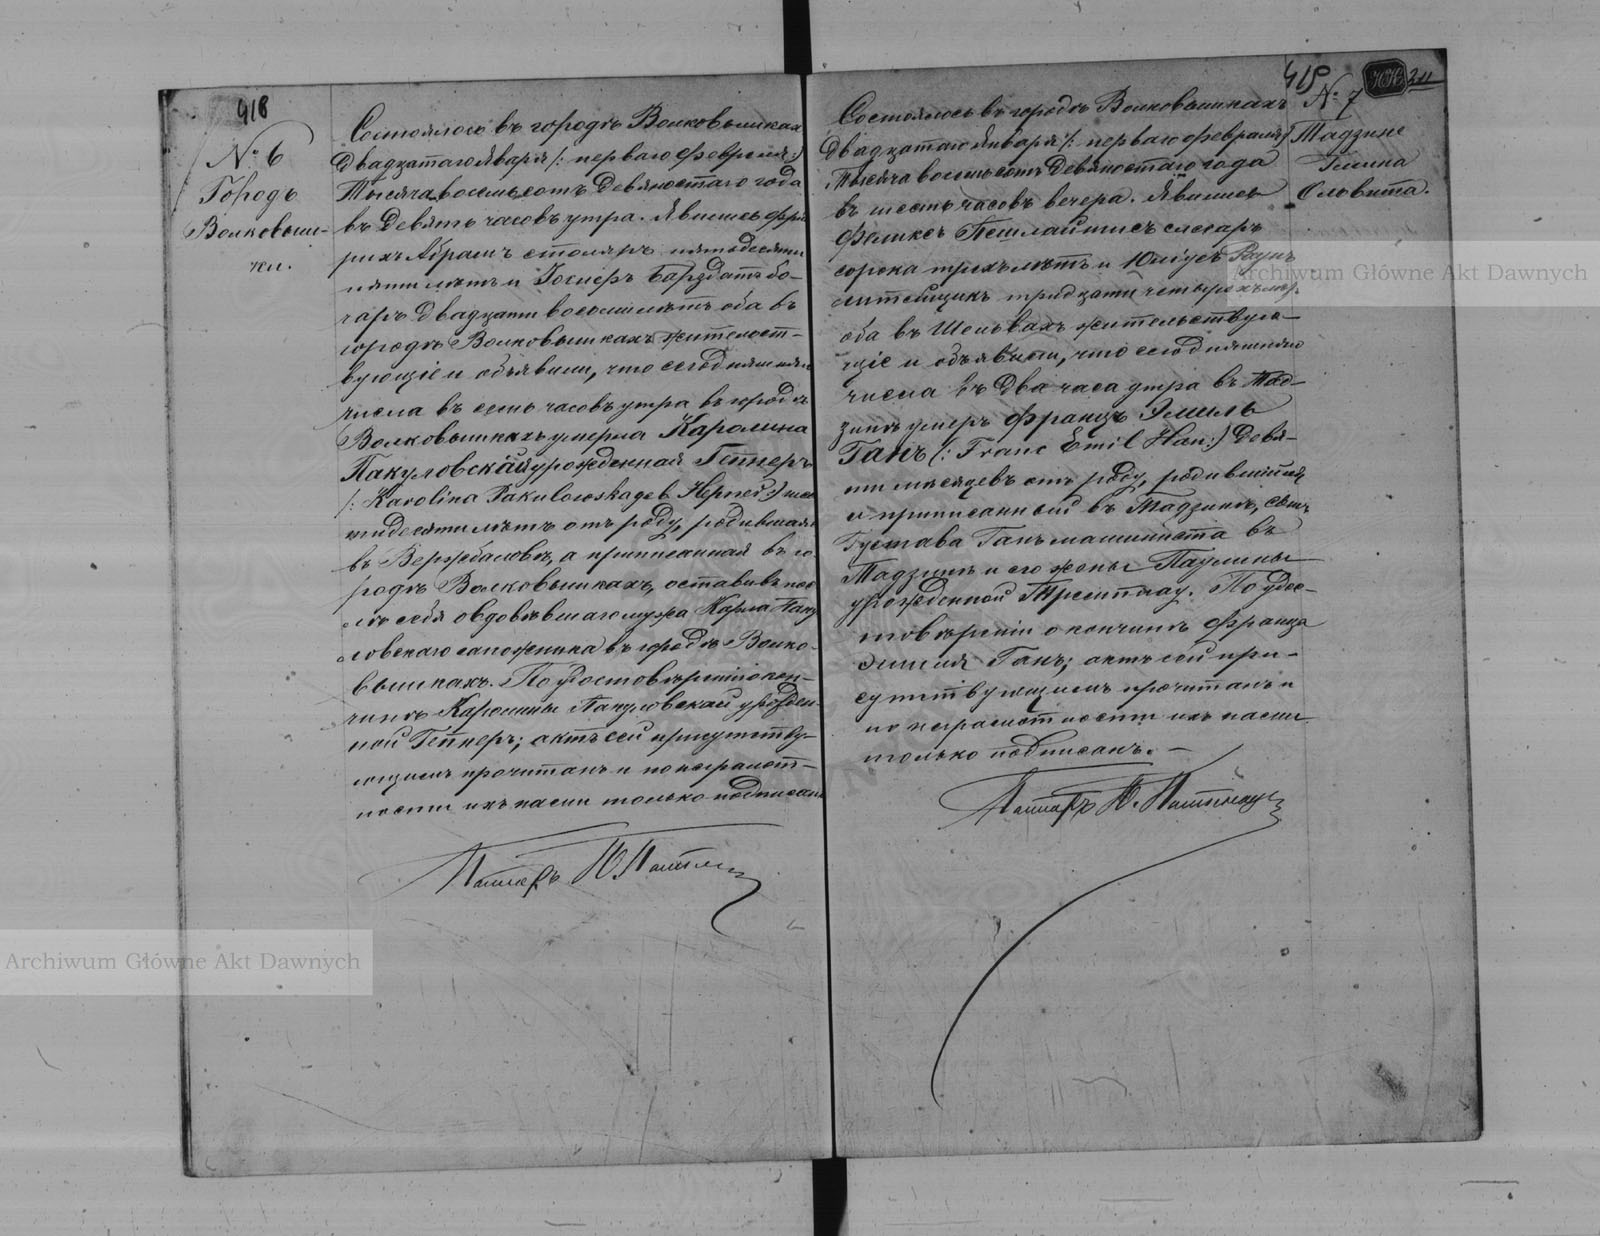 418
№ 6
Городъ
Волковыш-
ки.
Состоялось въ городѣ Волковышкахъ
Двадцатаго Января /: перваго Февраля :/
Тысяча восемьсотъ Девяностаго года
въ Девять часовъ утра. Явились Фрид
рихъ Абрамъ столяръ пятьдесяти
пяти лѣтъ и Госнеръ Барздатъ бо-
чаръ Двадцати восьми лѣтъ оба въ
городѣ Волковышкахъ жительст-
вующіе и объявили, что сегодняшняго
числа въ семь часовъ утра въ городѣ
Волковышкахъ умерла Каролина
Пакуловская урожденная Геппнеръ
/: Karolina Pakulowska geb Hepner :/ шес
тидесяти лѣтъ отъ роду, родившаяся
въ Вержболовѣ, а приписанная въ го-
родѣ Волковышкахъ, оставивъ пос
лѣ себя овдовѣвшаго мужа Карла Паку
ловскаго сапожника въ городѣ Волко-
вышкахъ. По удостовѣреніи о кон-
чинѣ Каролины Пакуловской урожден-
ной Геппнеръ; актъ сей присутству-
ющимъ прочитанъ и по неграмот-
ности ихъ нами только подписанъ
Пасторъ
419
211
№ 7
Мадзине
Гмина
Ольвита.
Состоялось въ городѣ Волковышкахъ
Двадцатаго Января /: перваго Февраля :/
Тысяча восемьсотъ Девяностаго года
въ шесть часовъ вечера. Явились
Феликсъ слесаръ
сорока трехъ лѣтъ и Юліусъ
литейщикъ тридцати четырехъ лѣтъ
оба въ жительствую-
щіе и объявили, что сегодняшняго
числа въ два часа утра въ Мад-
зинѣ умеръ Францъ Эмиль
Ганъ /: Franc Emil Han :/ Девя-
ти мѣсяцевъ отъ роду, родившійся
и приписанный въ Мадзинѣ, сынъ
Густава Ганъ машиниста въ
Мадзинѣ и его жены Паулины
урожденной По удос-
товѣреніи о кончинѣ Франца
Эмиля Ганъ; актъ сей при-
сутствующимъ прочитанъ и
по неграмотности ихъ нами
только подписанъ. —
Пасторъ
Archiwum Główne Akt Dawnych
Archiwum Główne Akt Dawnych